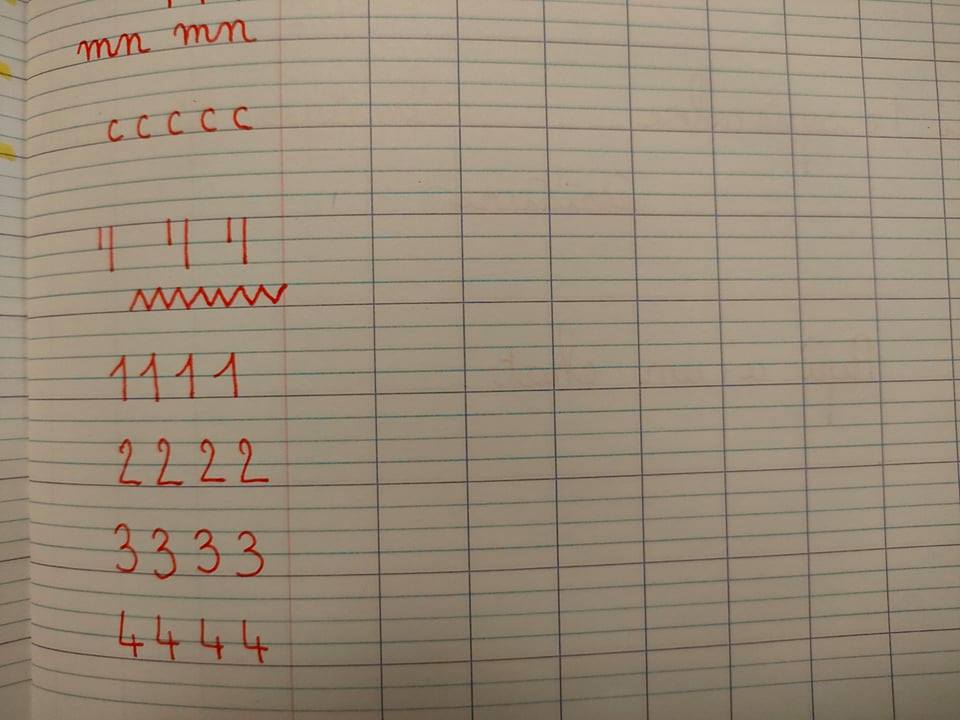 mn mn
c c c c c
1 1 1 1
2 2 2 2
3 3 3 3
4 4 4 4